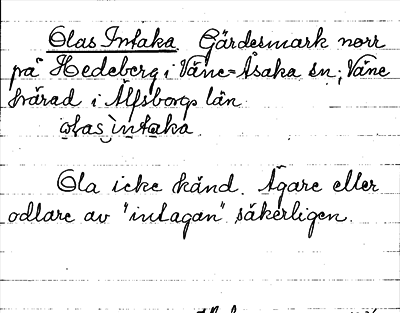 Olas Intaka. Gärdesmark norr
på Hedeberg i Väne-Åsaka sn; Väne
härad i Älfsborgs län.
olas intaka.
Ola icke känd. Ägare eller
odlare av "intagan" säkerligen.